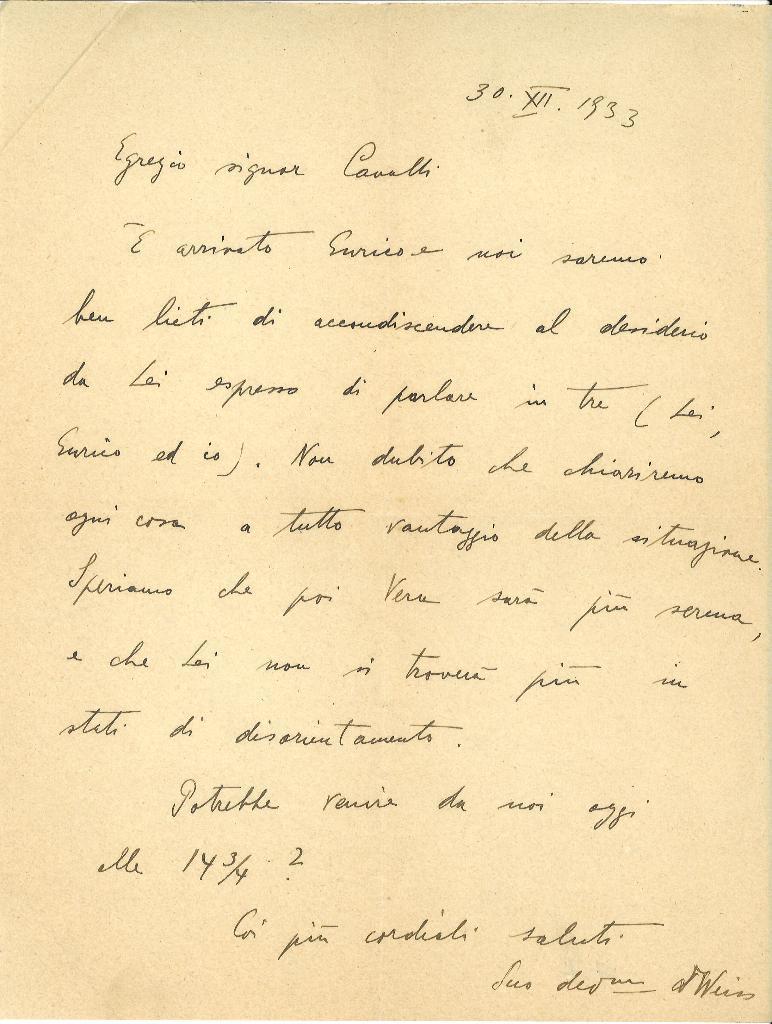 30. XII. 1933
Egregio signor Cavalli
È arrivato Enrico e noi saremo
ben lieti di accondiscendere al desiderio
da Lei espresso di parlare in tre (Lei,
Enrico ed io). Non dubito che chiariremo
ogni cosa a tutto vantaggio della situazione.
Speriamo che poi Vera sarà più serena,
e che Lei non si troverà più in
stati di disorientamento.
Potrebbe venire da noi oggi
alle 14 3/4 ?
Coi più cordiali saluti
Suo devmo Weiss